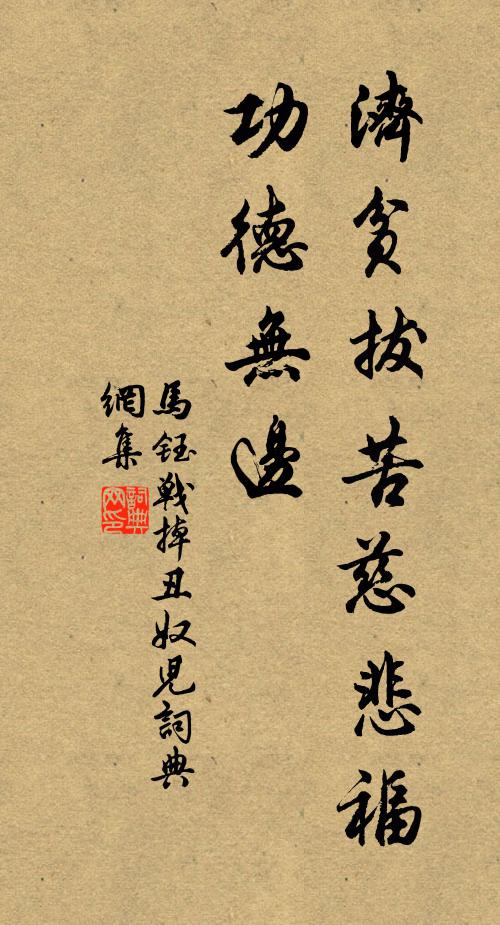 濟貧拔苦慈悲福
功德無邊
馬鈺戰掉丑奴兒詞典
網集
詞典
网印